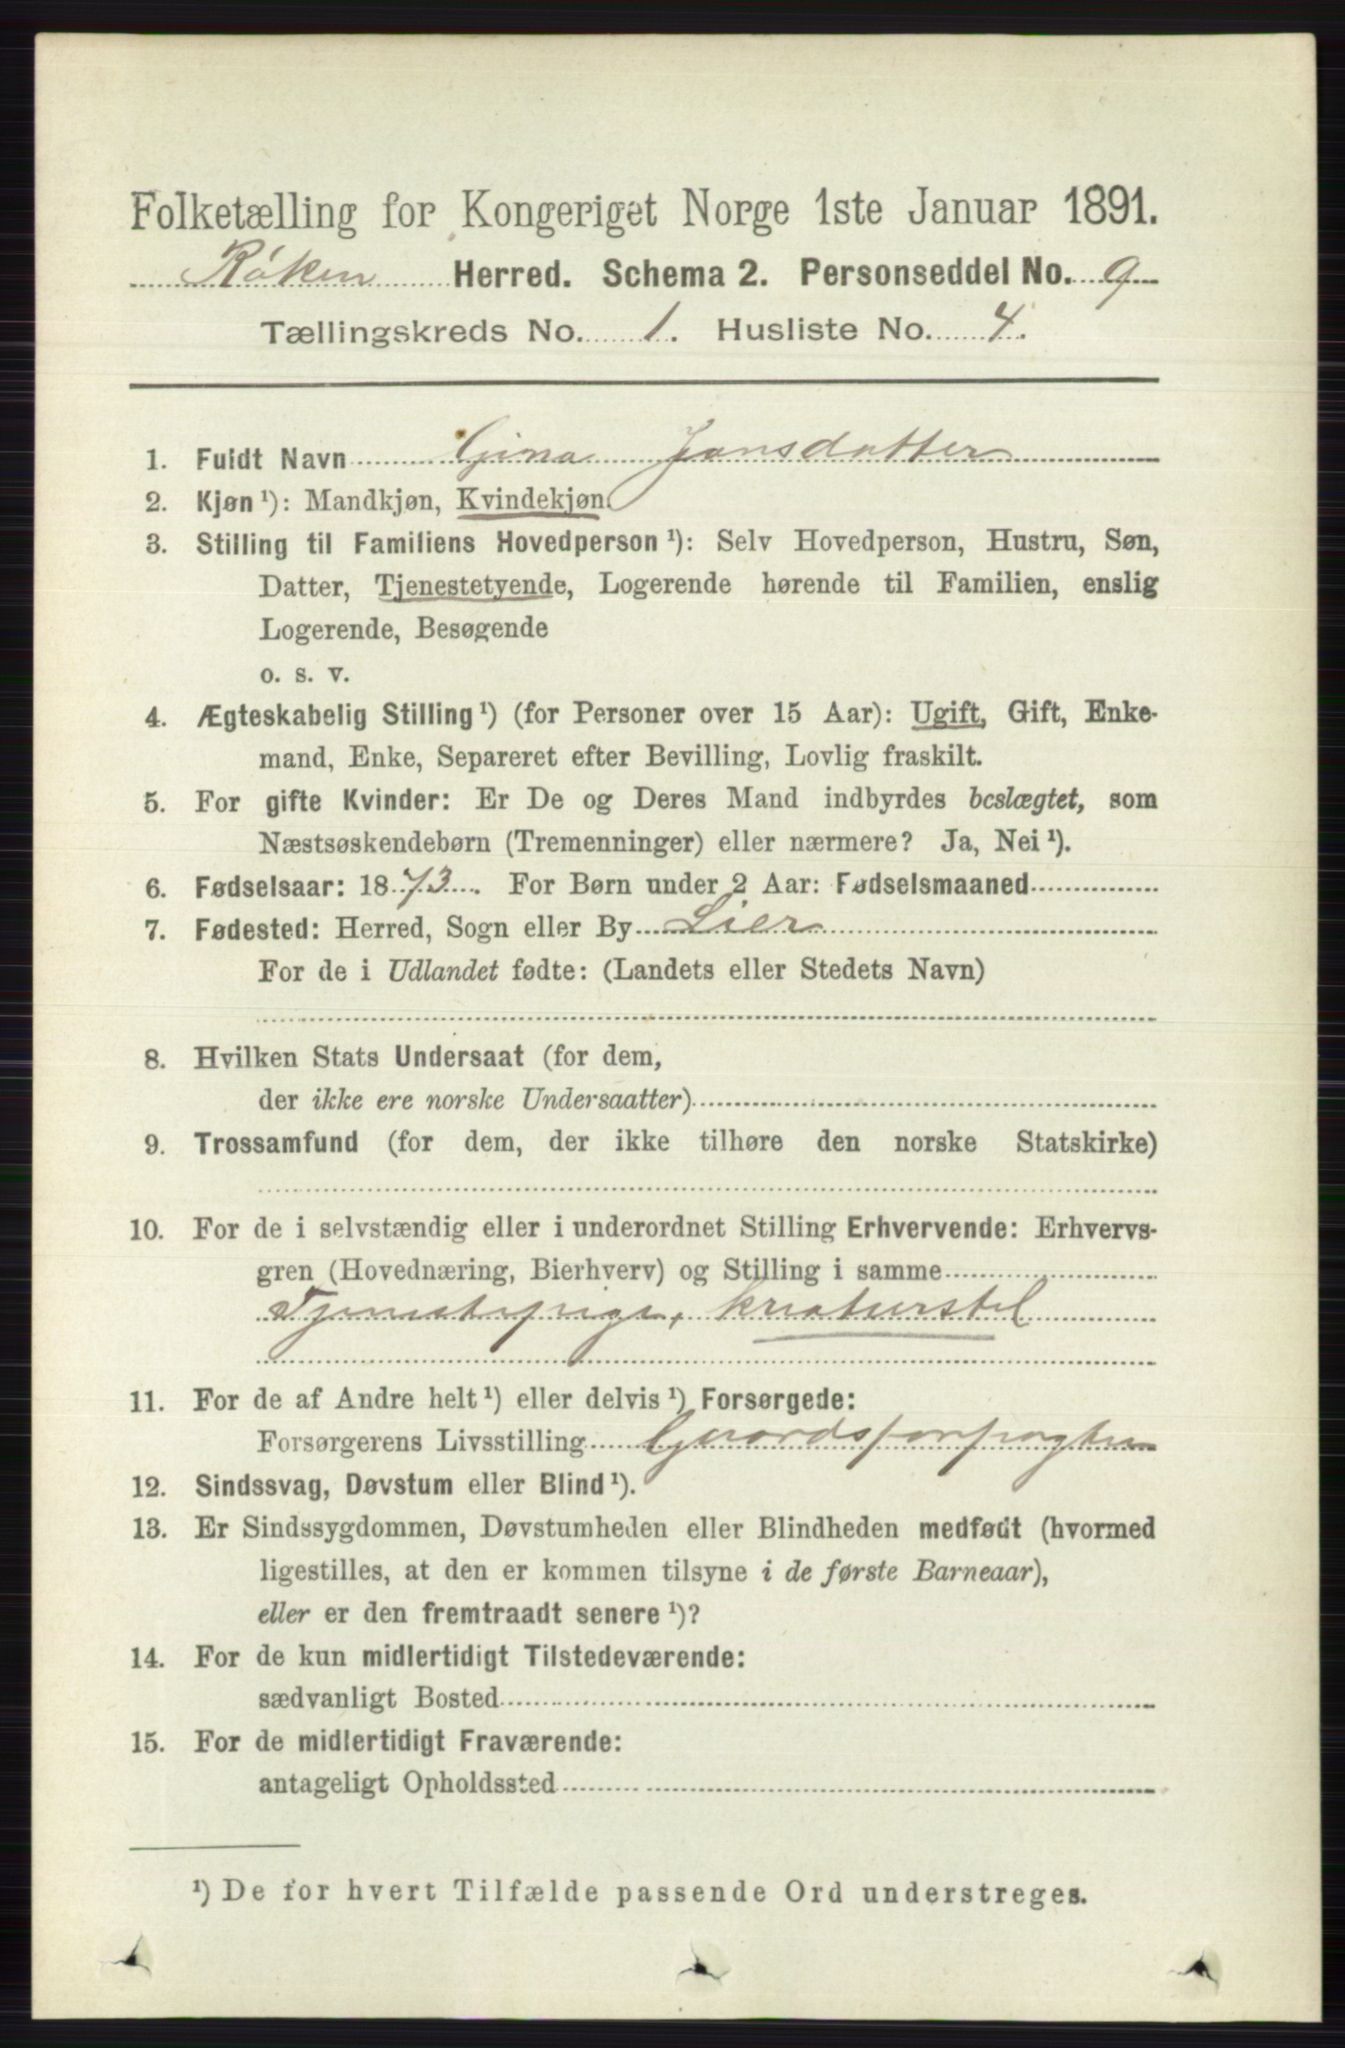 Folketælling for Kongeriget Norge 1ste Januar 1891.
Røken Herred. Schema 2. Personseddel No. 9
Tællingskreds No. 1. Husliste No. 4.
1. Fuldt Navn Gina Jansdatter
2. Kjøn ¹): Mandkjøn, Kvindekjøn
3. Stilling til Familiens Hovedperson ¹): Selv Hovedperson, Hustru, Søn,
Datter, Tjenestetyende, Logerende hørende til Familien, enslig
Logerende, Besøgende
o. s. v.
4. Ægteskabelig Stilling ¹) (for Personer over 15 Aar): Ugift, Gift, Enke-
mand, Enke, Separeret efter Bevilling, Lovlig fraskilt.
5. For gifte Kvinder: Er De og Deres Mand indbyrdes beslægtet, som
Næstsøskendebørn (Tremenninger) eller nærmere? Ja, Nei ¹).
6. Fødselsaar: 1873. For Børn under 2 Aar: Fødselsmaaned
7. Fødested: Herred, Sogn eller By Lier
For de i Udlandet fødte: (Landets eller Stedets Navn)
8. Hvilken Stats Undersaat (for dem,
der ikke ere norske Undersaatter)
9. Trossamfund (for dem, der ikke tilhøre den norske Statskirke)
10. For de i selvstændig eller i underordnet Stilling Erhvervende: Erhvervs-
gren (Hovednæring, Bierhverv) og Stilling i samme
Tjenestepige, kreaturstel
11. For de af Andre helt ¹) eller delvis ¹) Forsørgede:
Forsørgerens Livsstilling Gaardsforpagter
12. Sindssvag, Døvstum eller Blind ¹).
13. Er Sindssygdommen, Døvstumheden eller Blindheden medfødt (hvormed
ligestilles, at den er kommen tilsyne i de første Barneaar),
eller er den fremtraadt senere ¹)?
14. For de kun midlertidigt Tilstedeværende:
sædvanligt Bosted
15. For de midlertidigt Fraværende:
antageligt Opholdssted
¹) De for hvert Tilfælde passende Ord understreges.